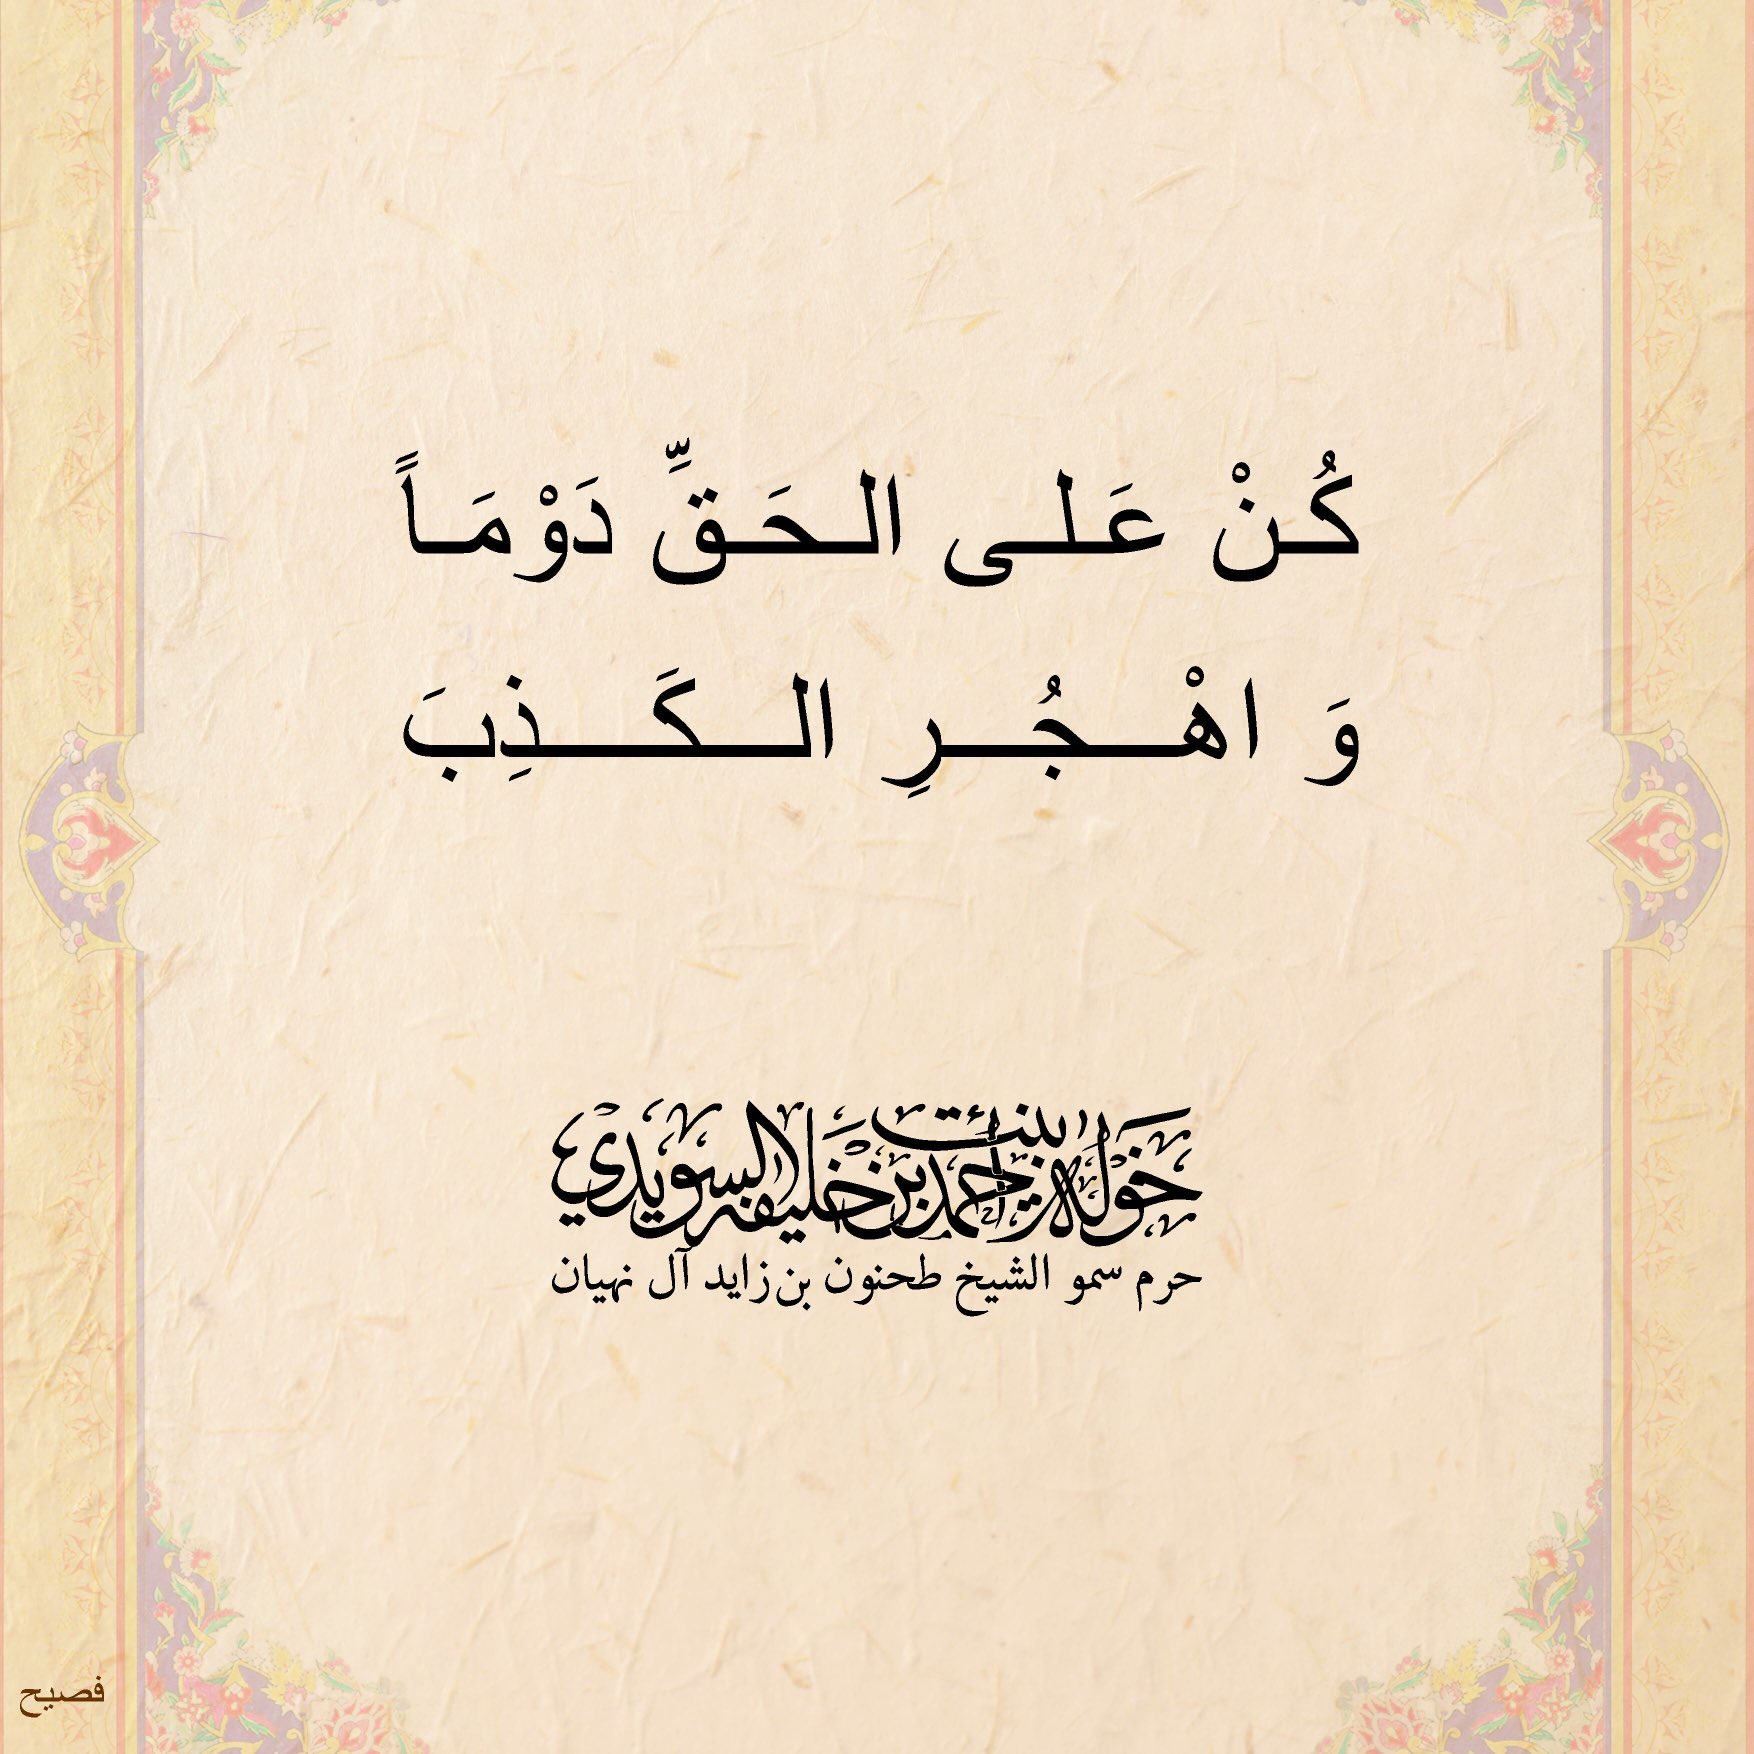 كُنْ عَلى الحَقِّ دَوْمَاً
وَ اهْجُرِ الكَذِبَ
خولة بنت أحمد بن خليفة السويدي
حرم سمو الشيخ طحنون بن زايد آل نهيان
فصيح